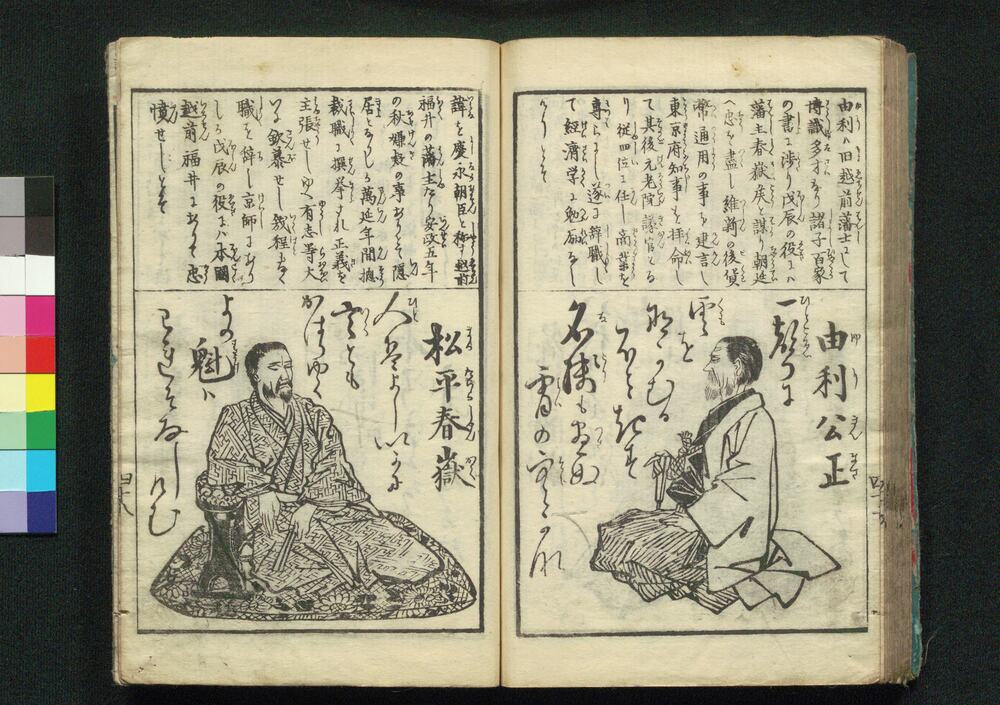 由利ハ旧越前藩士にして
博識多才なり諸子百家
の書に渉り戊辰の役にハ
藩主春嶽矦と謀り朝廷
へ忠を盡し維新の後貨
幣通用の事を建言し
東京府知事を拝命し
て其後元老院議官とな
り従四位に任し商業を
専らにし遂に辞職し
て経済学に勉励なし
けりとそ
由利公正
一聲に
雲を
名残も
霄の
諱を慶永朝臣と称す越前
福井の藩主なり安政五年
の秋嫌疑の事ありて隠
居となりしか萬延年間撰
裁職に撰挙され正義を
主張せしゆへ有志等大
いに欽慕せし我程なく
職を辞し京師にあり
しか戊辰の役にハ本國
越前福井にありて忠
憤せしとそ
松平春嶽
人とハよしいかに
言とも
かはつゆく
よの
魁ハ
四十八